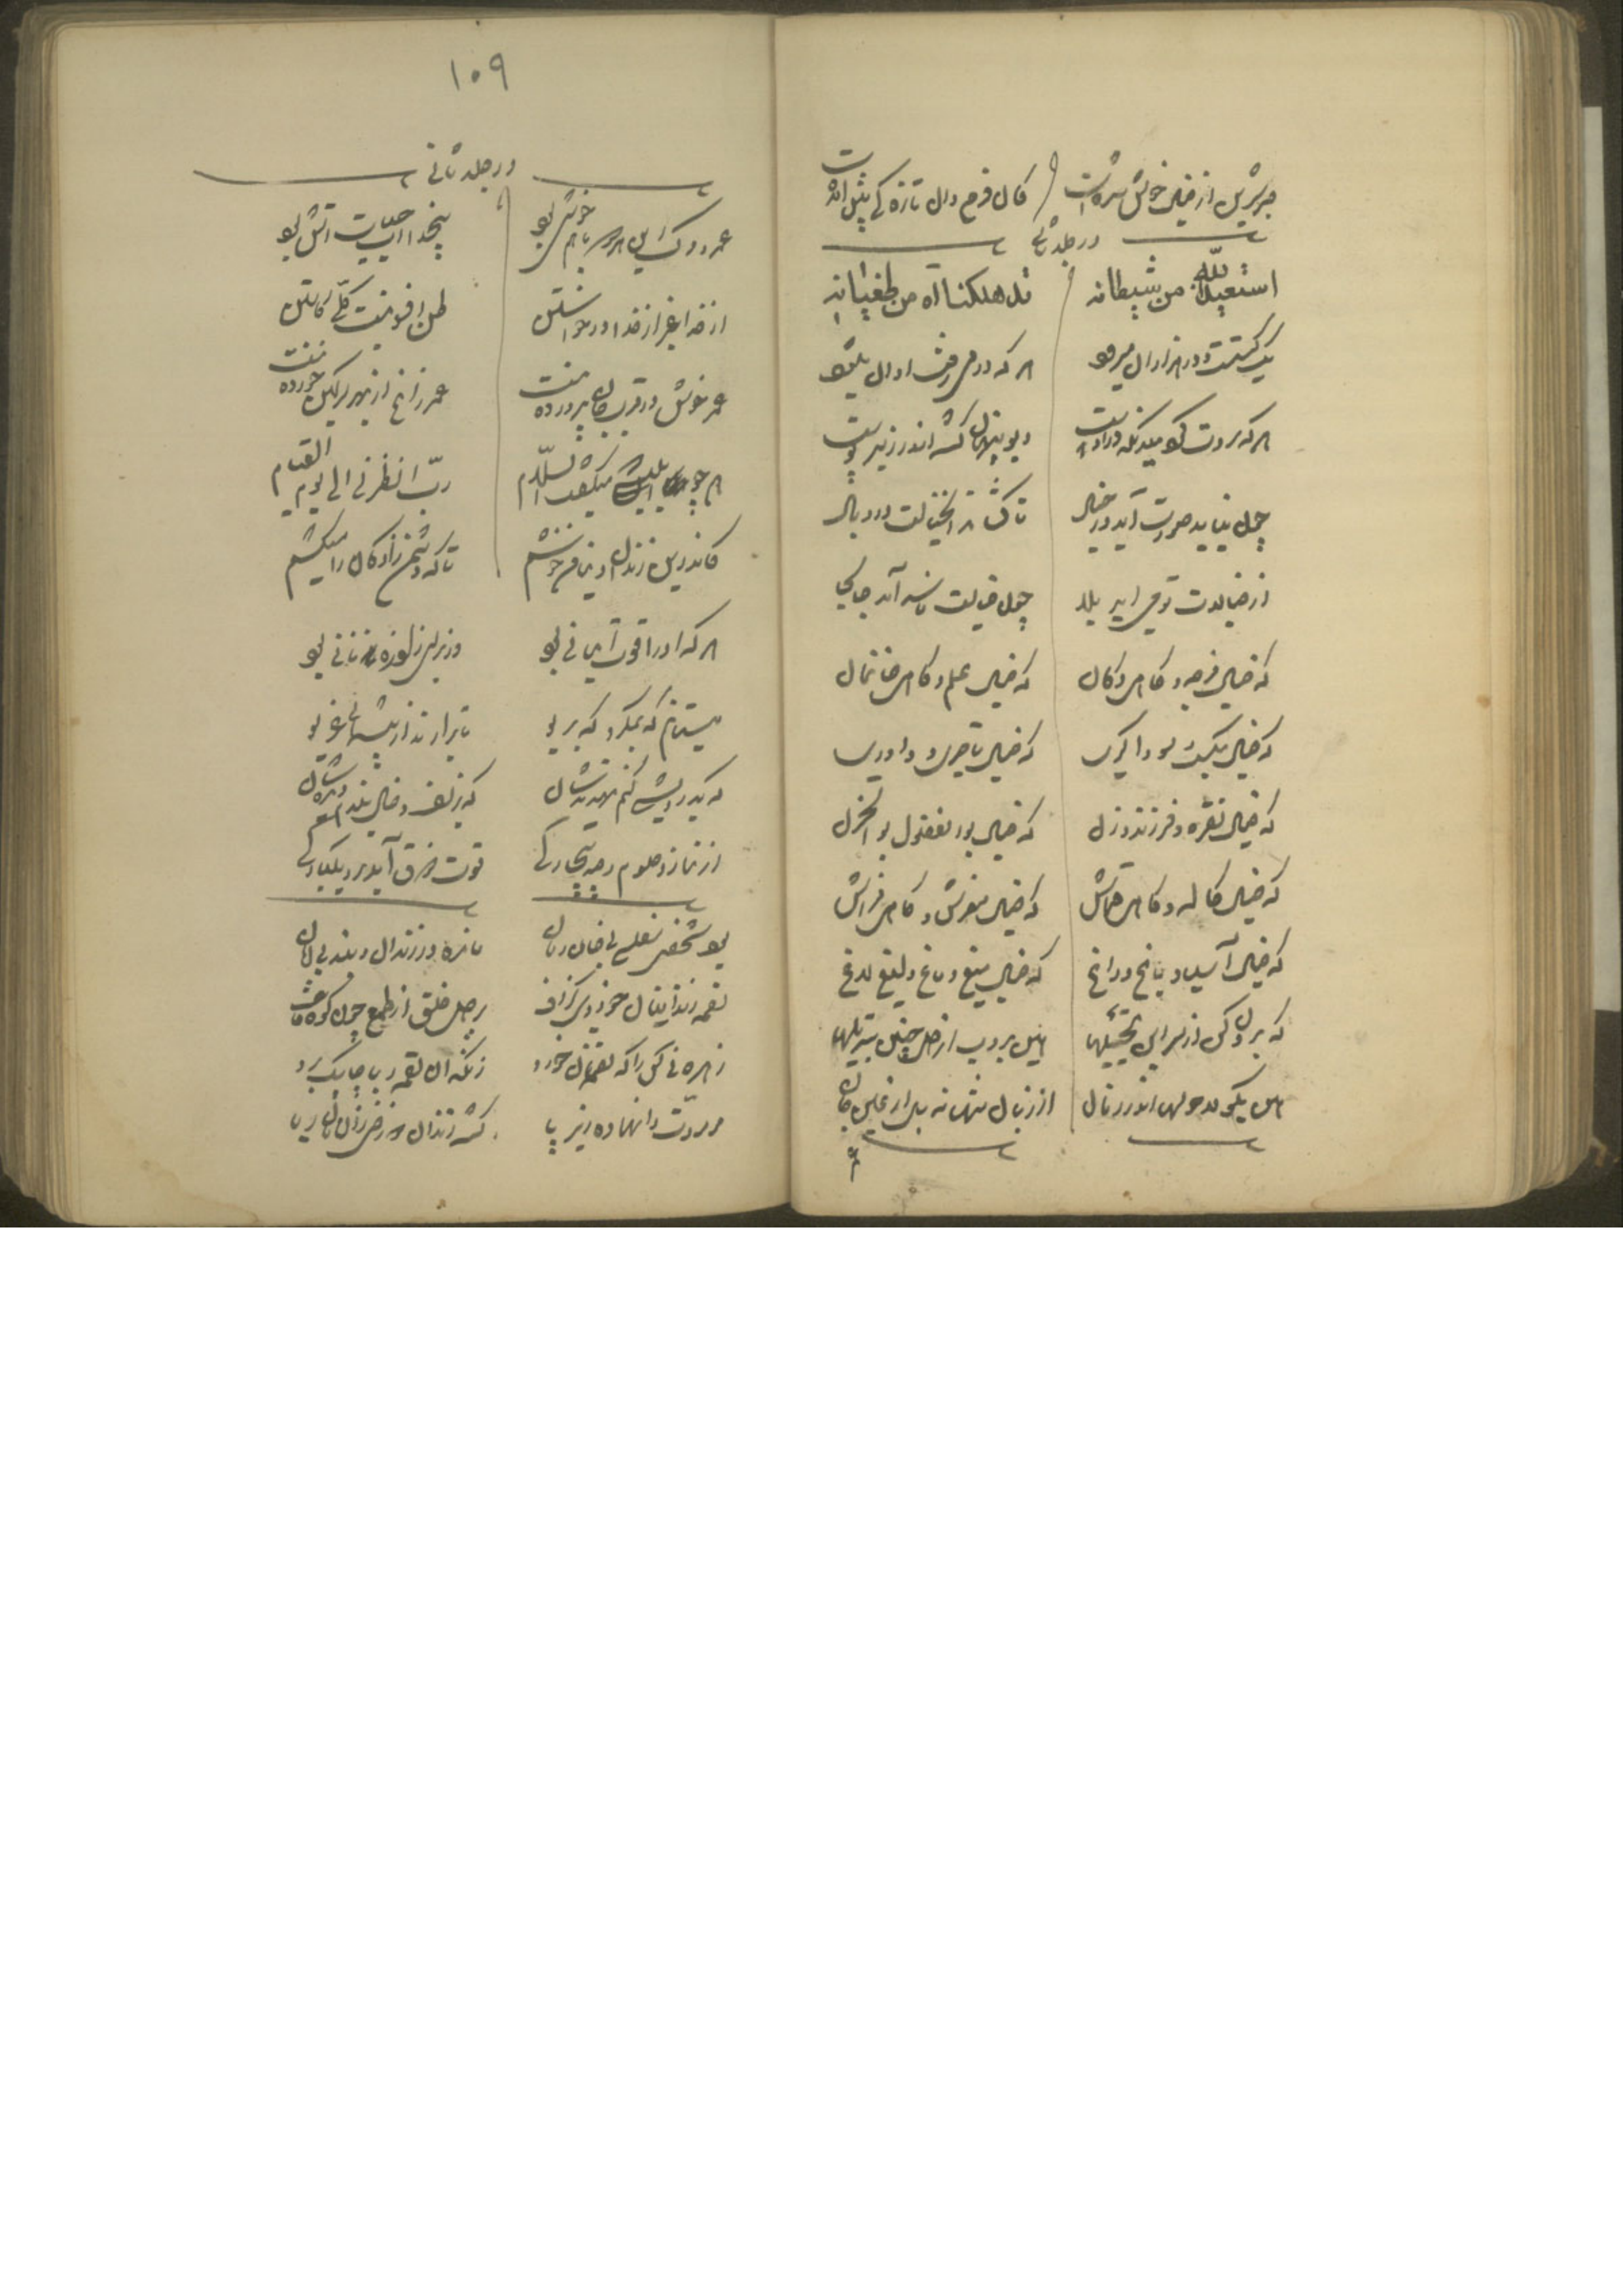 در جلد ثانی
استعیذ الله من شیطانه قد هلکنا آه من طغیانه
یک سگست و در هزاران میرود هر که در وی رفت او آن میشود
هر که سردت کرد میدان کو دروست دیو پنهان گشته اندر زیر پوست
چون نیابد صورت آید در خیال تا کشاند آن خیالت در وبال
که خیال فرجه و گاهی دکان که خیال علم و گاهی خانمان
که خیال مکسب و سوداگری که خیال تاجری و داوری
که خیال نقره و فرزند و زن که خیال بوالفضول بوالحزن
که خیال کاله و گاهی قماش که خیال مفرش و گاهی فراش
که خیال آسیا و باغ و راغ که خیال میغ و ماغ و لیغ و لاغ
هین برون کن از سر این تخییلها هین بروب از دل چنین تبدیلها
هین بگو لاحولها اندر زمان از زبان تنها نه بل از عین جان
۱۰۹
در جلد ثانی
عمر و مرگ این هر دو با هم خوش بود بیخدا آب حیات آتش بود
از خدا غیر از خدا در خواستن ظن افزونیست کلی کاستن
عمر خوش در قرب جان پروردنست عمر زاغ از بهر سرگین خوردنست
همچو ابلیسی که میگفت ای سلام رب انظرنی الی یوم القیام
کاندرین زندان دنیا من خوشم تا که دشمن زادگان را میکشم
هر که او را قوت ایمانی بود وز برای زاد ره نانی بود
میستانم گه بمکر و گه بریو تا برآرند از پشیمانی غریو
گه بدرویشی کنم تهدیدشان گه بزلف و خال بندم دیدشان
از نماز و صوم و صد بیچارگی قوت ذوق آید برد یکبارگی
بود شخصی مفلسی بی خان و مان مانده در زندان و بند بی امان
لقمه زندانیان خوردی گزاف بر دل خلق از طمع چون کوه قاف
زهره نی کس را که لقمه نان خورد زانکه آن لقمه ربا چابک برد
مر مروت را نهاده زیر پا گشته زندان دوزخی زان نان ربا